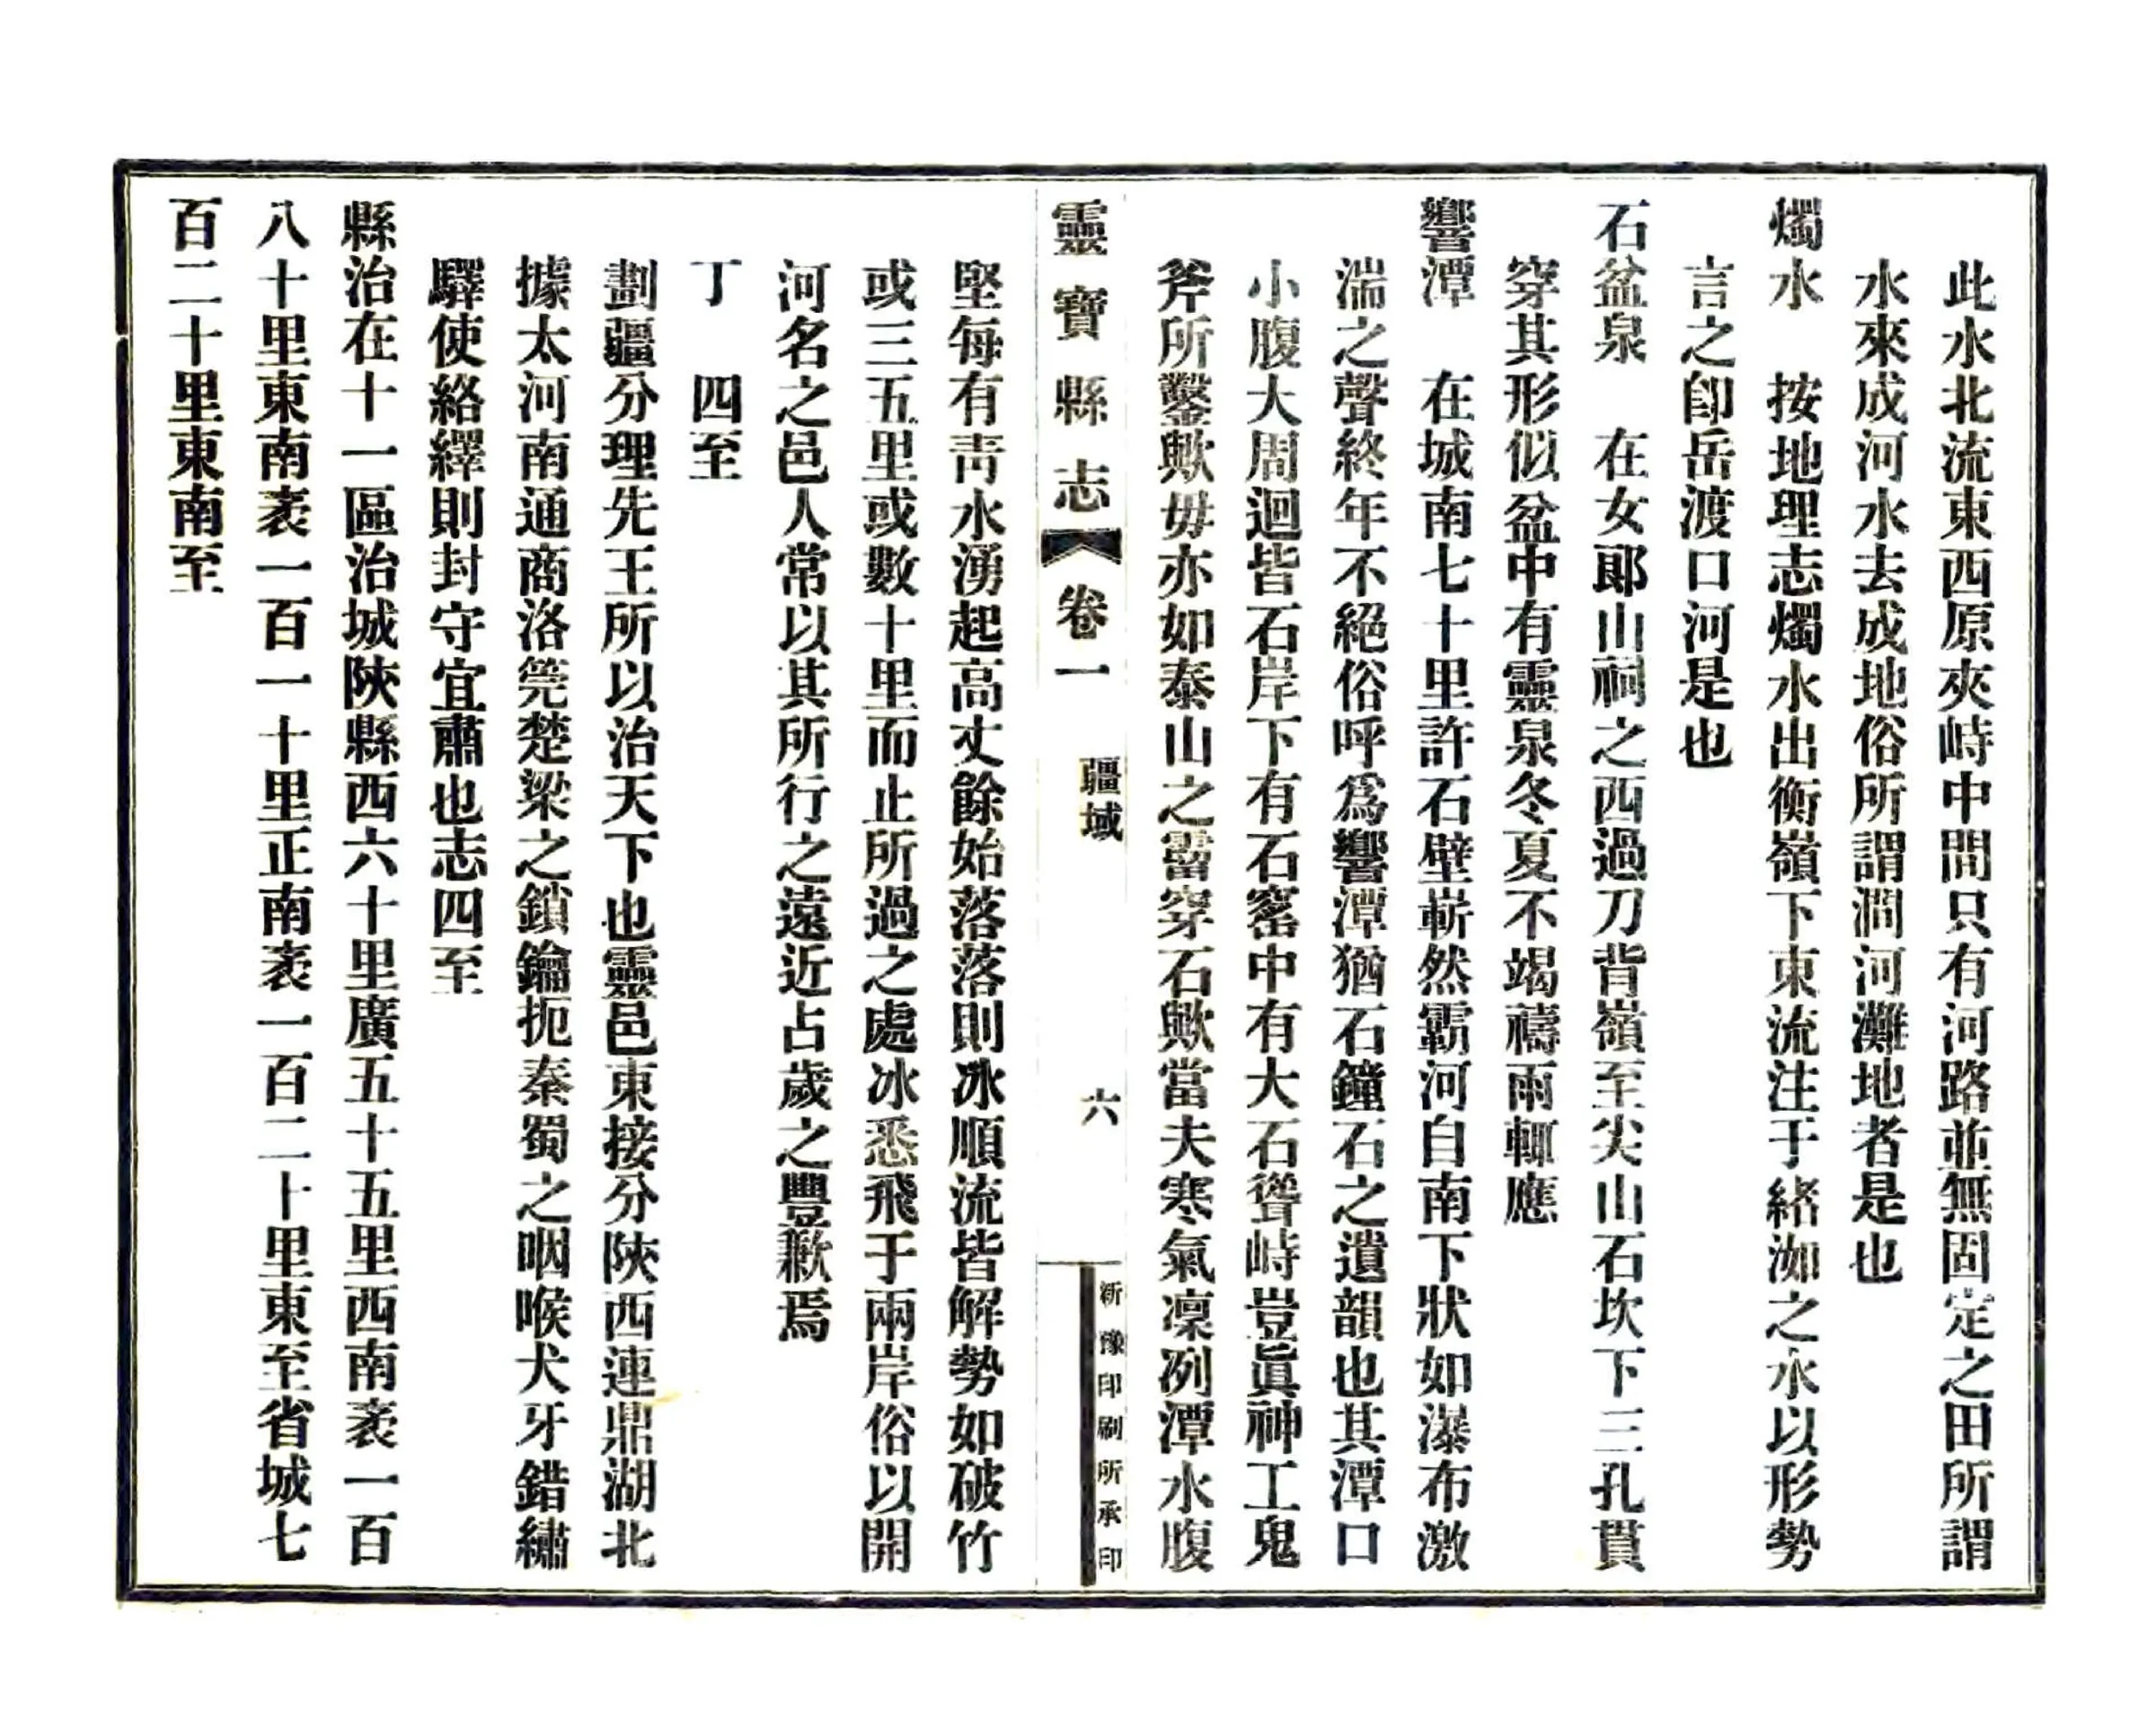 此水北流東西原夾峙中間只有河路並無固定之田所謂
水來成河水去成地俗所謂澗河灘地者是也
燭水　按地理志燭水出衡嶺下東流注于緒洳之水以形勢
言之卽岳渡口河是也
石盆泉　在女郞山祠之西過刀背嶺至尖山石坎下三孔貫
穿其形似盆中有靈泉冬夏不竭禱雨輒應
響潭　在城南七十里許石壁嶄然霸河自南下狀如瀑布激
湍之聲終年不絕俗呼爲響潭猶石鐘石之遺韻也其潭口
小腹大周迴皆石岸下有石窰中有大石聳峙豈眞神工鬼
斧所鑿歟毋亦如泰山之霤穿石歟當夫寒氣凜冽潭水腹
靈寶縣志　卷一　疆域　六　新豫印刷所承印
堅每有靑水湧起高丈餘始落落則冰順流皆解勢如破竹
或三五里或數十里而止所過之處冰悉飛于兩岸俗以開
河名之邑人常以其所行之遠近占歲之豐歉焉
丁　四至
劃疆分理先王所以治天下也靈邑東接分陝西連鼎湖北
據太河南通商洛筦楚梁之鎖鑰扼秦蜀之咽喉犬牙錯繡
驛使絡繹則封守宜肅也志四至
縣治在十一區治城陝縣西六十里廣五十五里西南袤一百
八十里東南袤一百一十里正南袤一百二十里東至省城七
百二十里東南至